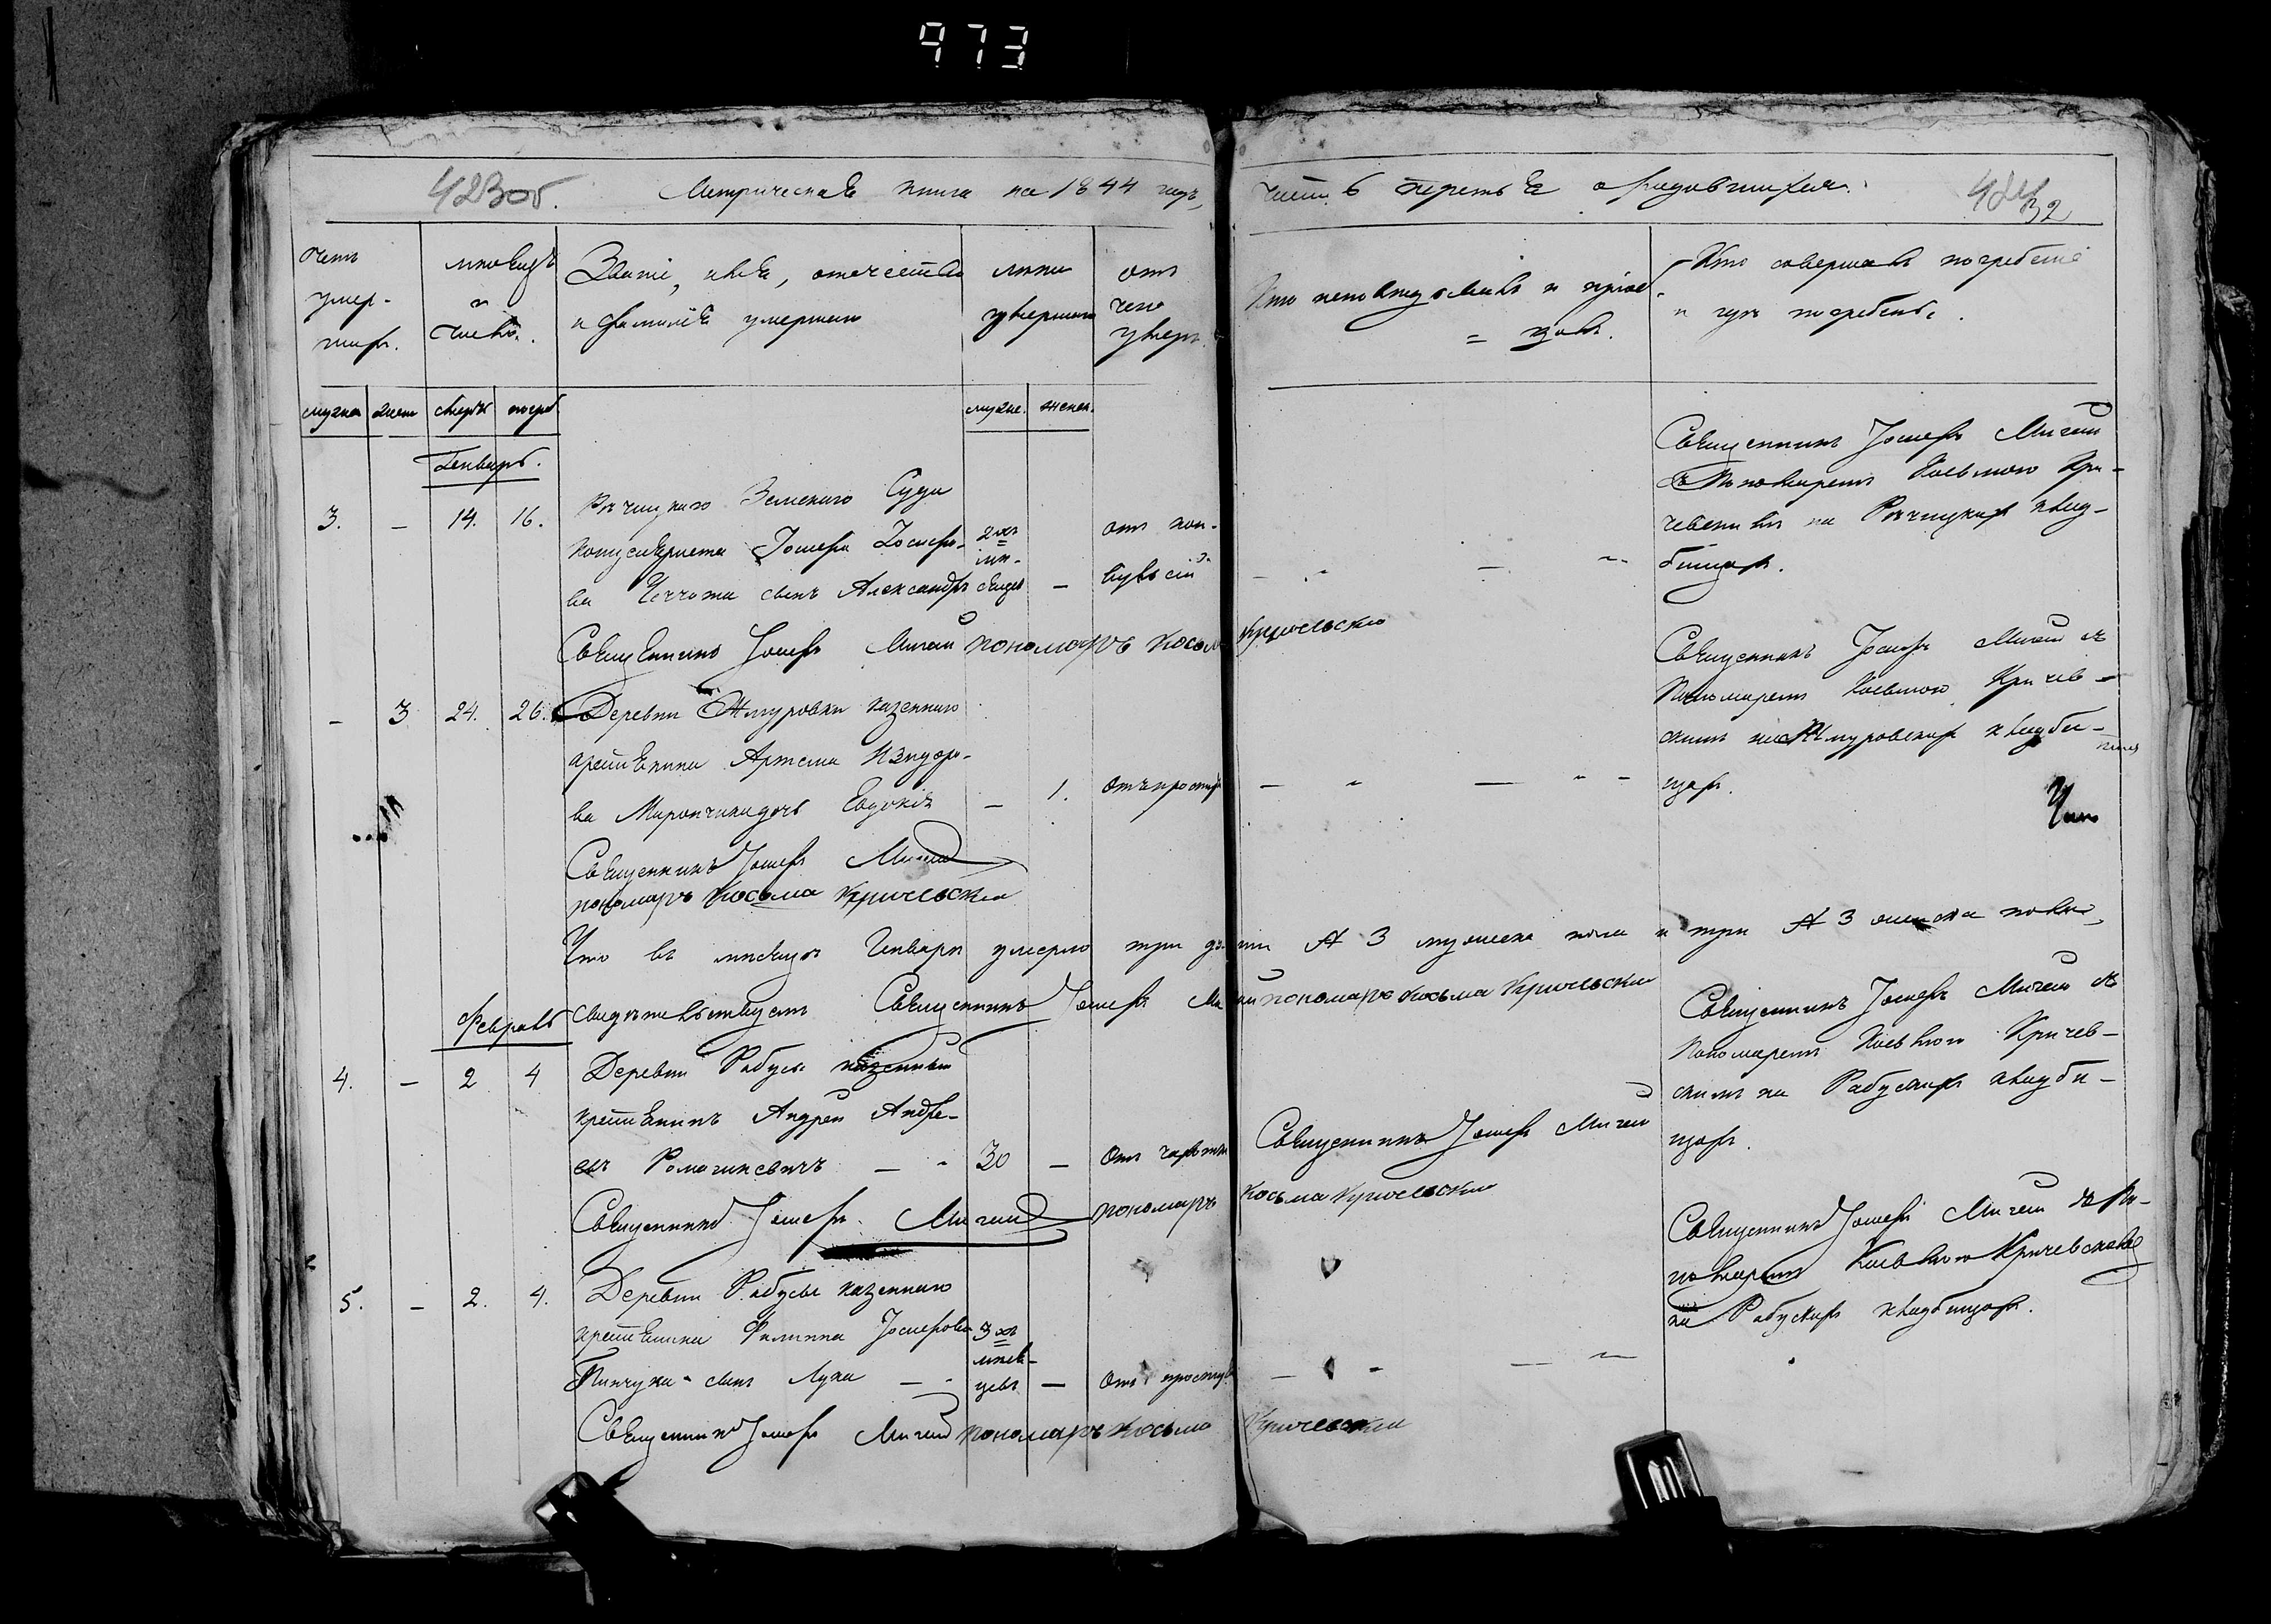 973
423об.
Метрическая книга на 1844 годъ,
часть третья о
432
Счетъ умер-шихъ.
мѣсяцъ и число.
Званіе, имя, отечество и фамилія умершаго
лѣта умершаго
отъ чего умеръ.
Кто исповѣдывалъ и пріоб-
=щалъ.
Кто совершалъ погребеніе
и гдѣ погребенъ.
мужеска женск смерт погреб. мужес. женск.
Генварь.
3. – 14. 16.
Рѣчицкаго Земскаго Суда
Іосифа Іосифо-
ва сынъ Александръ
2хъ мѣ-сяцъ –
отъ кон-вульсій
– " – "
Священникъ Іосифъ Мигай
съ Пономаремъ Косьмою Кри-
чевскимъ на Рѣчицкомъ клад-
бищѣ.
Священникъ Іосифъ Мигай пономарь Косьма Кричевскій
– 3 24. 26.
Деревни Жмуровки казеннаго
крестьянина Артема
ва дочь Евдокія – 1. Отъ простуды
– " – " –
Священникъ Іосифъ Мигай съ
Пономаремъ Косьмою Кричев-
скимъ на Жмуровскомъ кладби-
щѣ.
Священникъ Іосифъ Мигай
пономарь Косьма Кричевскій
Что въ мѣсяцѣ Генварѣ умерло три № 3 мужеска пола и три № 3 женска пола,
свидѣтельствуемъ Священникъ Іосифъ Мигай пономарь Косьма Кричевскій
Февраль
4. – 2 4
Деревни Рабусы казенный
крестьянинъ Андрей Андре-
евъ – " 30 – Отъ чахотки
Священникъ Іосифъ Мигай
Священникъ Іосифъ Мигай съ
Пономаремъ Косьмою Кричев-
скимъ на Рабускомъ кладби-
щѣ.
Священникъ Іосифъ Мигай пономарь Косьма Кричевскій
5. – 2. 4.
Деревни Рабусы казеннаго
крестьянина Филиппа Іосифова
Пинчука сынъ Лука –
3хъ мѣся-цевъ – Отъ простуды
– " – "
Священникъ Іосифъ Мигай съ По-
номаремъ Косьмою Кричевскимъ
на Рабускомъ кладбищѣ.
Священникъ Іосифъ Мигай пономарь Косьма Кричевскій